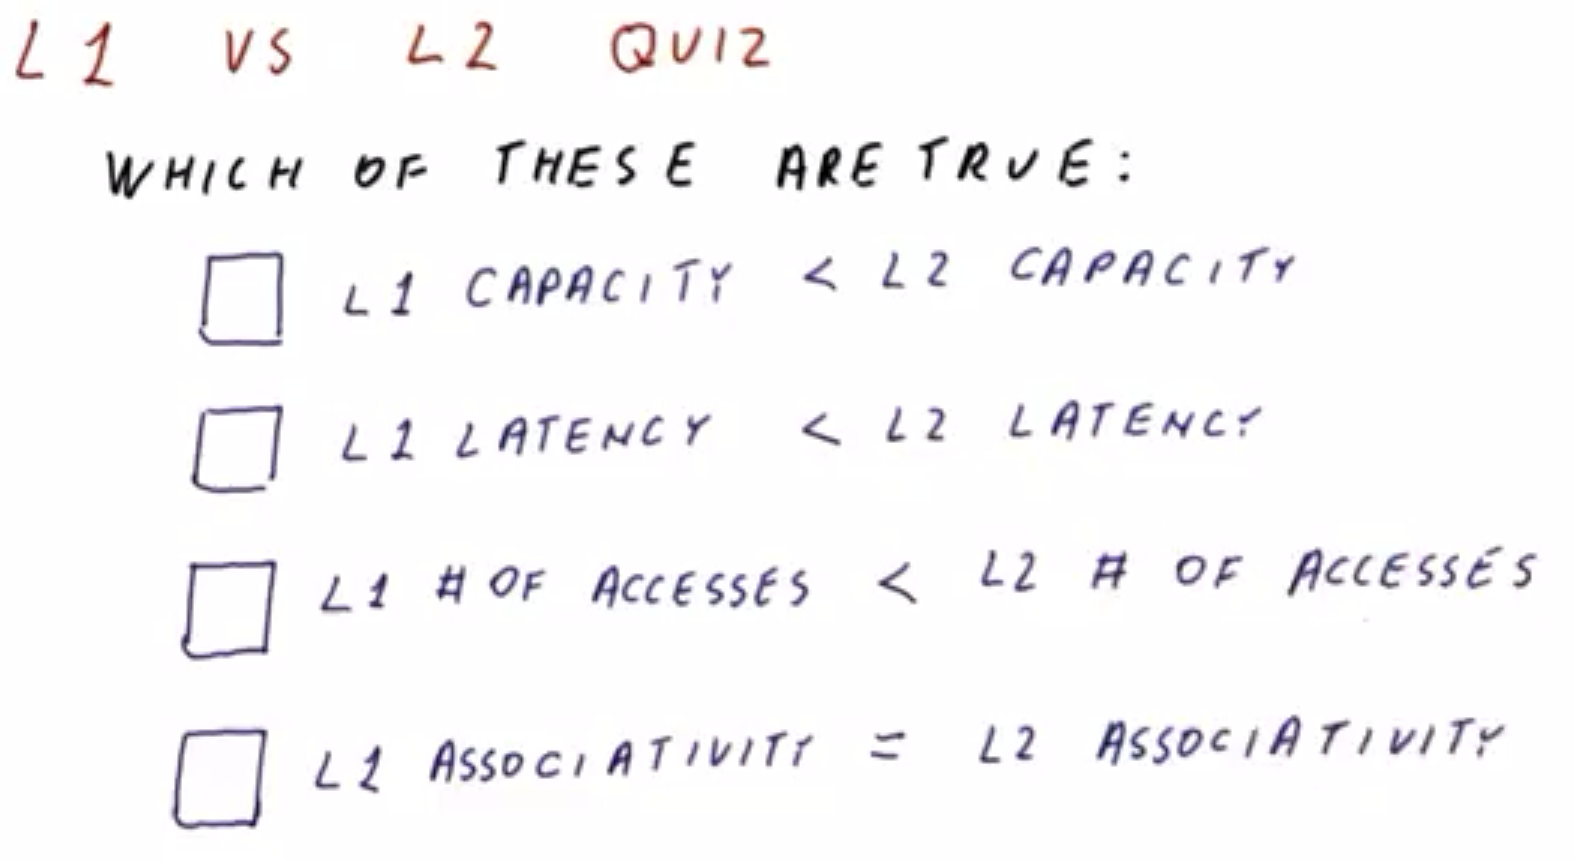 L1 VS L2 QUIZ
WHICH OF THESE ARE TRUE:
L1 CAPACITY < L2 CAPACITY
L1 LATENCY < L2 LATENCY
L1 # OF ACCESSES < L2 # OF ACCESSES
L1 ASSOCIATIVITY = L2 ASSOCIATIVITY